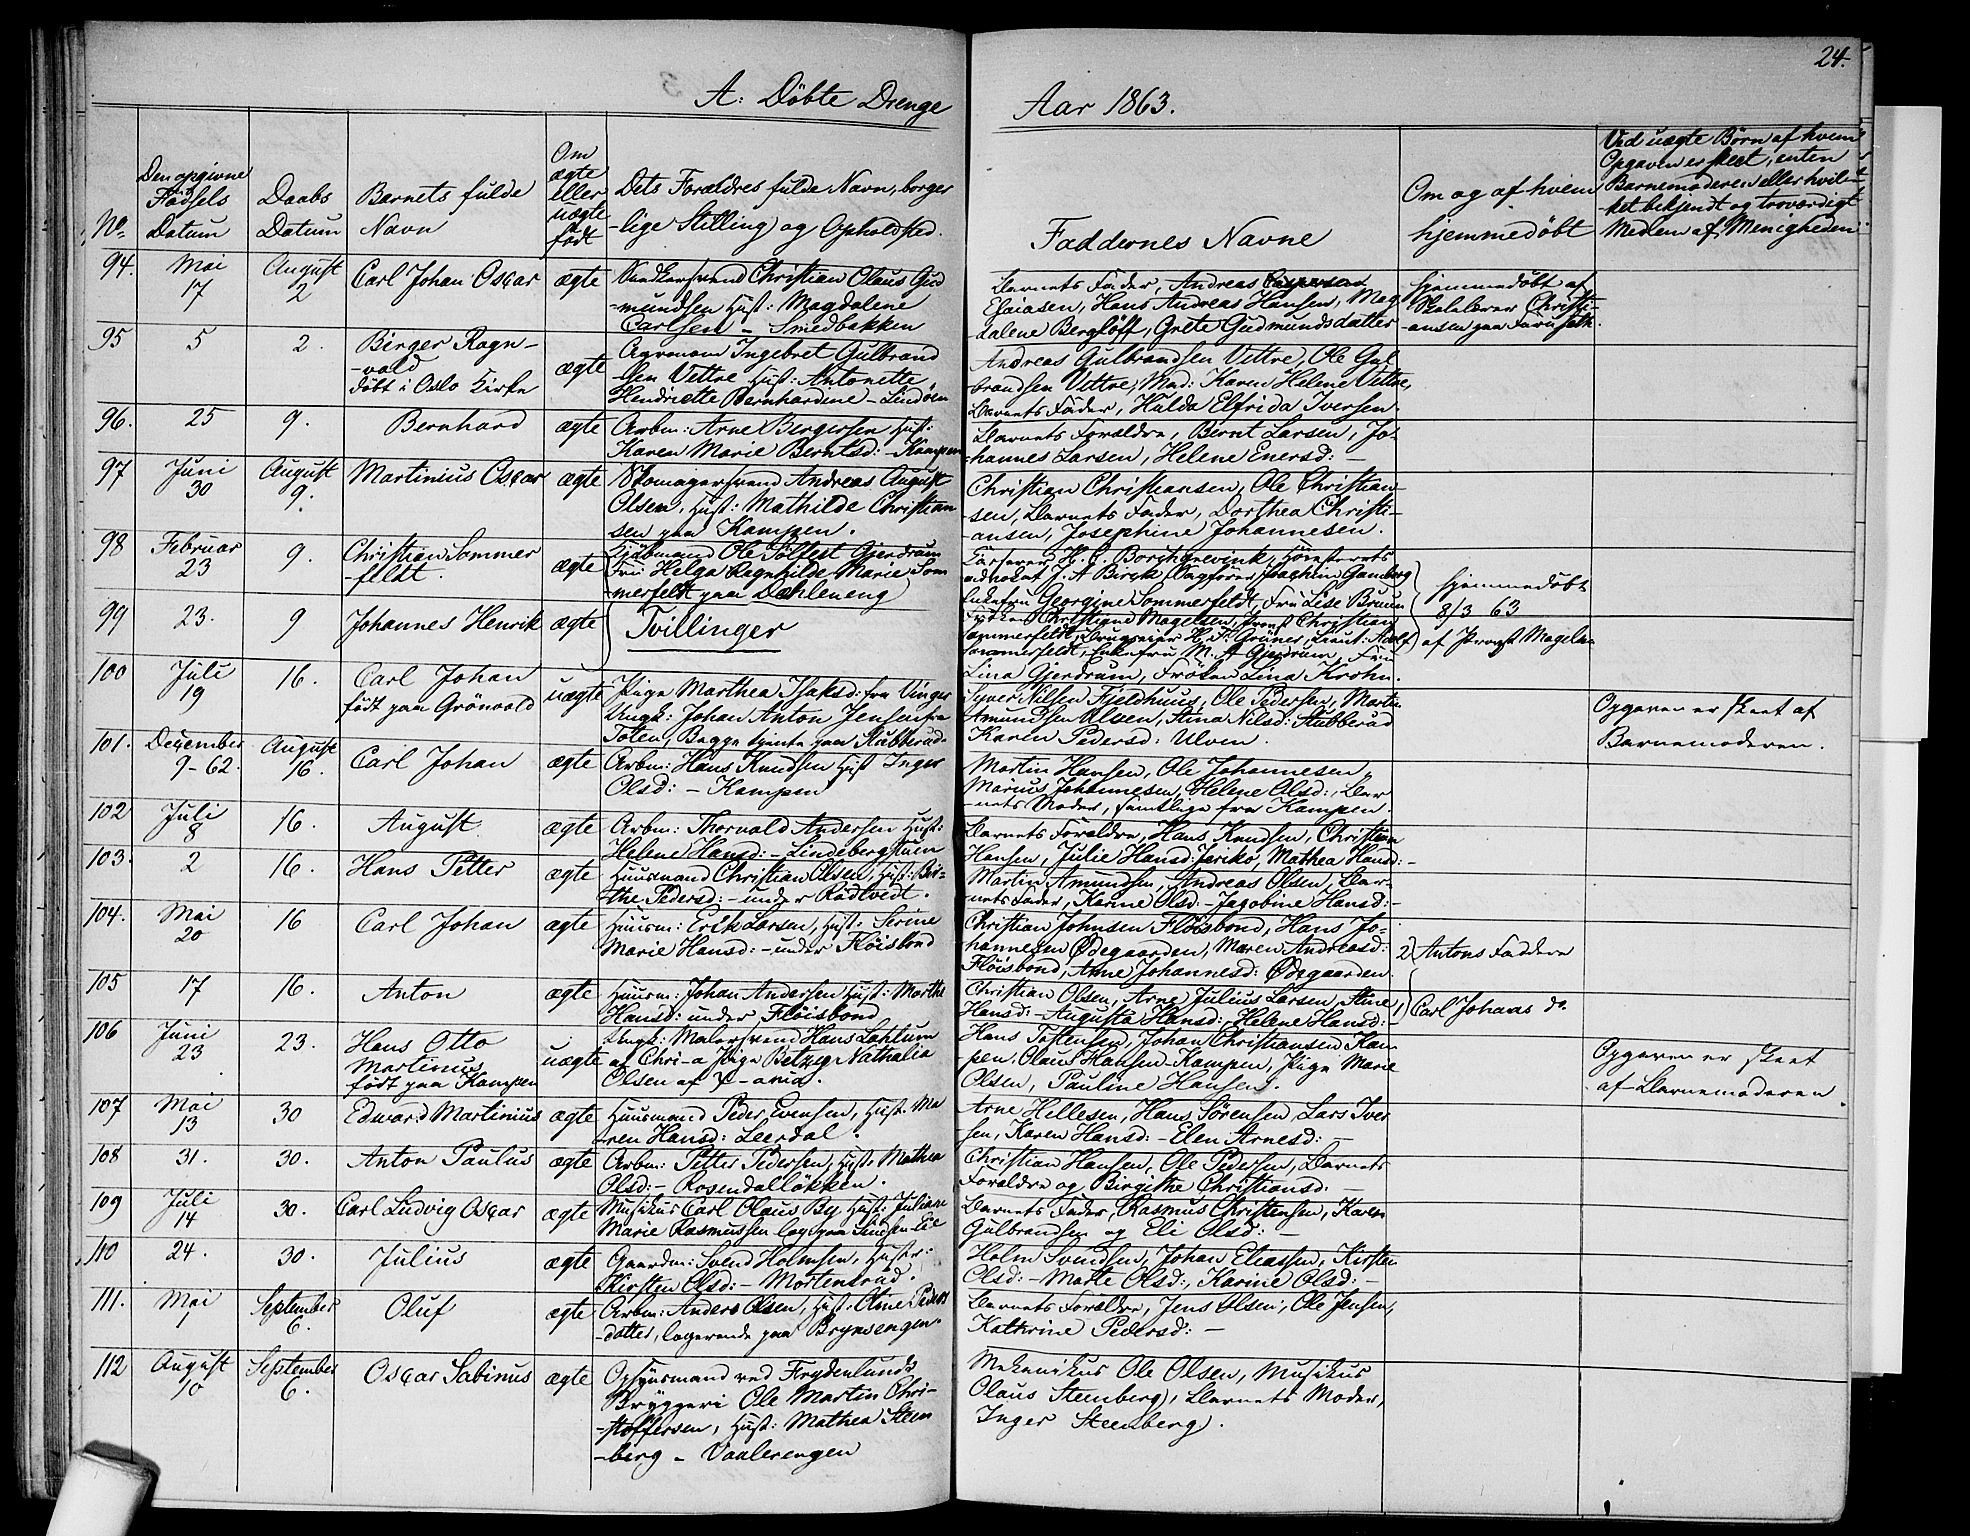 24.
A: Döbte Drenge Aar 1863.
No. Den opgivne Fødsels Datum Daabs Datum Barnets fulde Navn Om ægte eller uægte født Dets Forældres fulde Navn, borger-lige Stilling og Opholdsted. Faddernes Navne Om og af hvem hjemmedöbt Ved uægte Börn af hvem Opgaven er skeet, enten Barnemoderen eller hvil-ket bekjendt og troværdigt Medlem af Menigheden
94. Mai 17 August 2 Carl Johan Oscar ægte Snedkersvend Christian Olaus Gud
-mundsen Hust: Magdalene
Carlsen - Smedbakken
Barnets Fader, Andreas
Esaiasen, Hans Andreas Hansen, Mag
dalene Berglöff, Grete Gudmundsdatter
Hjemmedöbt af
Skolelærer Christi-
-ansen paa Furuseth.
95 5 2. Birger Ragn-
-vald
döbt i Oslo Kirke
ægte Agronom Ingebret Gulbrand
sen Vettre Hust: Antonette
Henriette Bernhardine - Lindöen
Andreas Gulbrandsen Vettre, Ole Gul
brandsen Vettre, Mad: Karen Helene Vettre,
Barnets Fader, Hulda Elfrida Iversen.
96. 25 9. Bernhard ægte Arbm: Arne Bergersen Hust:
Karen Marie Berntsd: - Kampen
Barnets Forældre, Bernt Larsen, Jo-
hannes Larsen, Helene Enersd: -
97 Juni 30 August 9. Martinius Oscar ægte Skomagersvend Andreas August
Olsen, Hust: Mathilde Christian
sen paa Kampen.
Christian Christiansen, Ole Christian-
-sen, Barnets Fader, Dorthea Christi-
-ansen, Josephine Johannesen.
98 Februar 23 9. Christian Sommer
-feldt.
ægte Kjöbmand Ole Tollest Gjerdrum
Fru Helga Ragnhilde Marie Som
merfeldt paa Dæhleneng
99 23. 9 Johannes Henrik ægte Tvillinger
Kasserer H. C. Borchgrevink, Höiesterets
advokat J. A Birck Sagförer Joachim
Enkefru Georgine Sommerfeldt, Fru Lise Bruun
Fröken Christiane Magelsen, Provst Christian
Sommerfeldt, H. Fr Grüner, Lieut: Adolf
Sommerfeldt, Enkefru M. A Gjerdrum, Frk
Lina Gjerdrum, Fröken Lina Krohn.
Hjemmedöbt
8/3 63
af Provst Magelsen
100 Juli 19 16. Carl Johan
född paa Grönvold
uægte Pige Marthea Isaksd: fra Vinger
Ungk: Johan Anton Jensen fra
Toten, Begge tjente paa Stubberud.
Syver Nilsen Fjeldhuus, Ole Pedersen, Martin
Amundsen Olsen, Stina Nilsd: Stubberud
Karen Pedersd: Ulven.
Opgaven er skeet af
Barnemoderen.
101. December 9-62. August 16. Carl Johan ægte Arbm: Hans Knudsen Hust Inger
Olsd: - Kampen
Martin Hansen, Ole Johannesen
Marius Johannesen, Helene Olsd:, Bar
-nets Moder, samtlige fra Kampen.
102 Juli 8 16. August ægte Arbm: Thorvald Andersen Hust:
Helene Hansd: - Lindebergstuen
Barnets Forældre, Hans Knudsen, Christian
Hansen, Julie Hansd: Jeriko, Mathea Hansd: -
103. 2 16. Hans Petter ægte Huusmand Christian Olsen, Hust: Bir-
the Pedersd: - under Rödtvedt.
Martin Amundsen, Andreas Olsen, Bar-
nets Fader, Karine Olsd - Jagobine Hansd: -
104. Mai 20 16 Carl Johan ægte Huusm: Erik Larsen, Hust: Serine
Marie Hansd: - under Flöisbond
Christian Johnsen Flöisbond, Hans Jo-
hannesen Ödegaarden, Maren Andreasd:
Flöisbond, Arne Johannesd: Ödegaarden
2) Antons Faddere
105 17 16. Anton ægte Huusm: Johan Andersen Hust: Marthe
Hansd: under Flöisbond
Christian Olsen, Arne Julius Larsen, Stine
Hansd: - Augusta Hansd:, Helene Hansd: -
1) Carl Johans do
106 Juni 23 23. Hans Otto
Martinus
född paa Kampen
uægte Ungk: Malersvend Hans Lahlum
af Chri-a Pige Betzy Nathalia
Olsen af X-ania.
Hans Tostensen, Johan Christiansen Kam-
-pen, Olaus Hansen Kampen, Pige Marie
Olsen, Pauline Hansen.
Opgaven er skeet
af Barnemoderen.
107 Mai 13 30 Edvard Martinius ægte Huusmand Peder Evensen, Hust. Ma
-ren Hansd: Leerdal.
Arne Hellesen, Hans Sörensen Lars Iver
sen, Karen Hansd: - Elen Arnesd: -
108 31. 30. Anton Paulus ægte Arbm: Petter Pedersen, Hust: Mathea
Olsd: - Rosendallökken.
Christian Hansen, Ole Pedersen, Barnets
Forældre og Birgithe Christiansd: -
109 Juli 14 30. Carl Ludvig Oscar ægte Musikus Carl Olaus By Hust: Juliane
Marie Rasmussen log: paa Sindsen Eie
Barnets Fader, Rasmus Christensen, Karen
Gulbrandsen og Eli Olsd: -
110 24. 30. Julius ægte Gaardm: Svend Holmsen, Hustr:
Kirsten Olsd: - Mortensrud.
Holm Svendsen, Johan Eliassen, Kirsten
Olsd: - Matte Olsd:, Karine Olsd: -
111. Mai 1 September 6. Oluf ægte Arbm: Anders Olsen, Hust: Stine Peders
-datter, logerende paa Brynsengen.
Barnets Forældre, Jens Olsen, Ole Jensen,
Kathrine Pedersd: -
112 August 10 September 6. Oscar Sabinus ægte Opsynsmand ved Frydenlunds
Bryggeri Ole Martin Chri-
-stoffersen, Hust: Mathea Steen
-berg - Vaalerengen
Mekanikus Ole Olsen, Musikus
Olaus Steenberg, Barnets Moder,
Inger Steenberg.